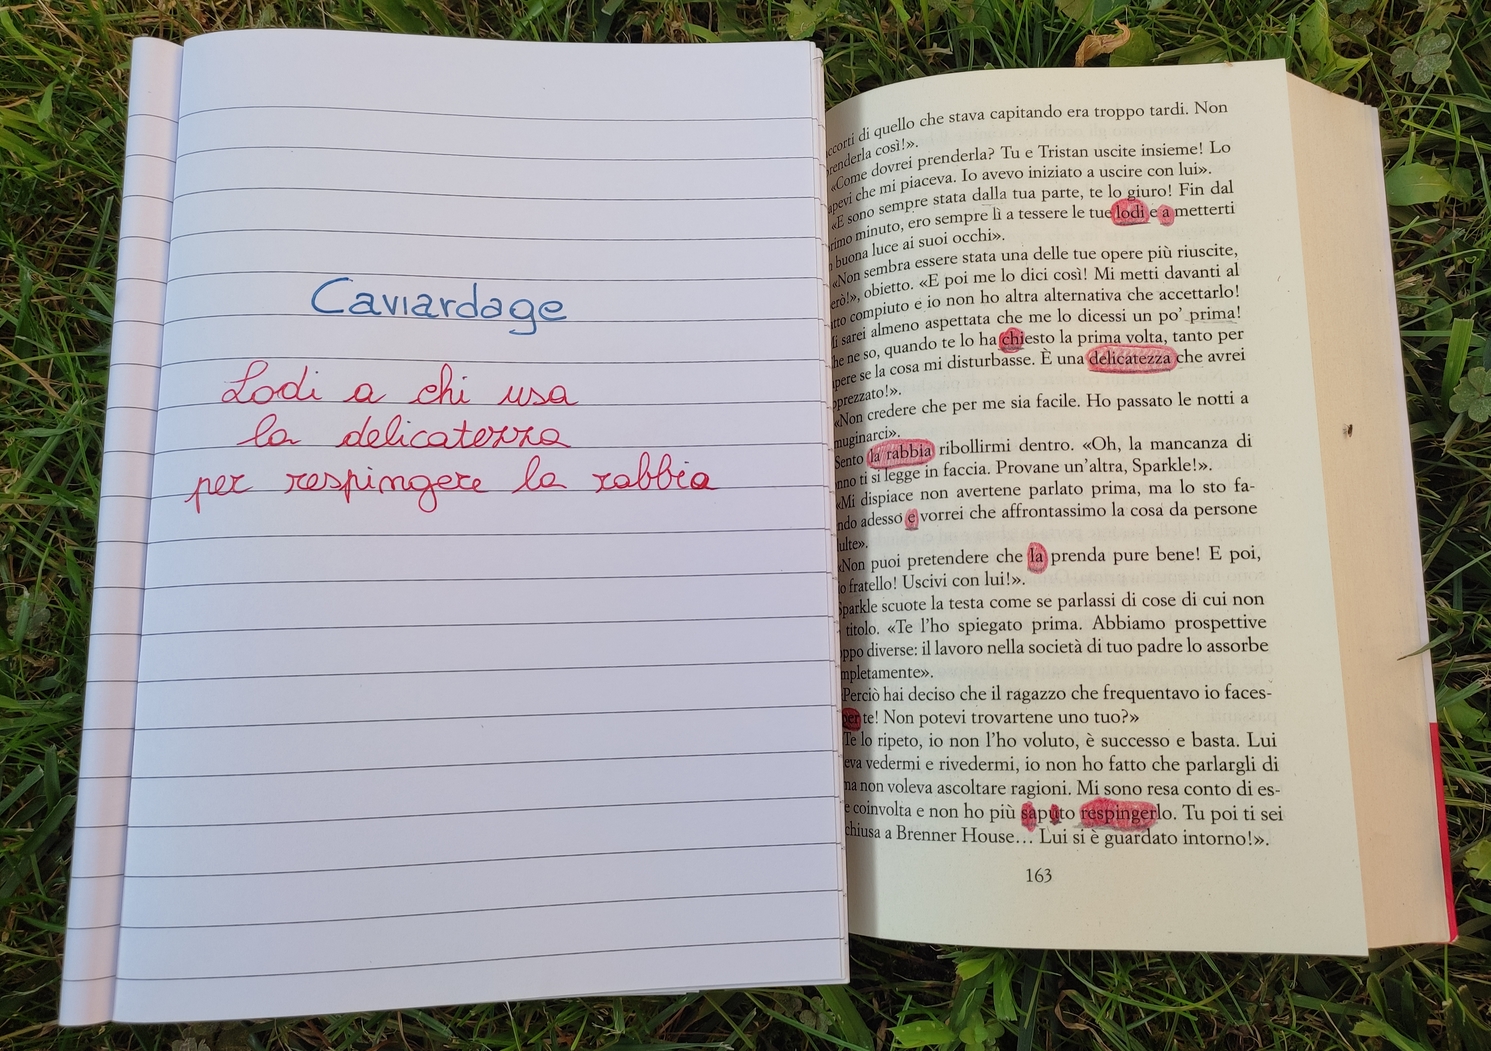 Caviardage
Lodi a chi usa
la delicatezza
per respingere la rabbia
ccorti di quello che stava capitando era troppo tardi. Non
renderla così!».
«Come dovrei prenderla? Tu e Tristan uscite insieme! Lo
apevi che mi piaceva. Io avevo iniziato a uscire con lui».
«E sono sempre stata dalla tua parte, te lo giuro! Fin dal
rimo minuto, ero sempre lì a tessere le tue lodi e a metterti
buona luce ai suoi occhi».
«Non sembra essere stata una delle tue opere più riuscite,
erò!», obietto. «E poi me lo dici così! Mi metti davanti al
tto compiuto e io non ho altra alternativa che accettarlo!
i sarei almeno aspettata che me lo dicessi un po' prima!
he ne so, quando te lo ha chiesto la prima volta, tanto per
pere se la cosa mi disturbasse. È una delicatezza che avrei
pprezzato!».
«Non credere che per me sia facile. Ho passato le notti a
muginarci».
Sento la rabbia ribollirmi dentro. «Oh, la mancanza di
nno ti si legge in faccia. Provane un'altra, Sparkle!».
«Mi dispiace non avertene parlato prima, ma lo sto fa-
ndo adesso e vorrei che affrontassimo la cosa da persone
ulte».
«Non puoi pretendere che la prenda pure bene! E poi,
o fratello! Uscivi con lui!».
Sparkle scuote la testa come se parlassi di cose di cui non
titolo. «Te l'ho spiegato prima. Abbiamo prospettive
ppo diverse: il lavoro nella società di tuo padre lo assorbe
mpletamente».
Perciò hai deciso che il ragazzo che frequentavo io faces-
per te! Non potevi trovartene uno tuo?»
Te lo ripeto, io non l'ho voluto, è successo e basta. Lui
eva vedermi e rivedermi, io non ho fatto che parlargli di
ma non voleva ascoltare ragioni. Mi sono resa conto di es-
e coinvolta e non ho più saputo respingerlo. Tu poi ti sei
chiusa a Brenner House… Lui si è guardato intorno!».
163